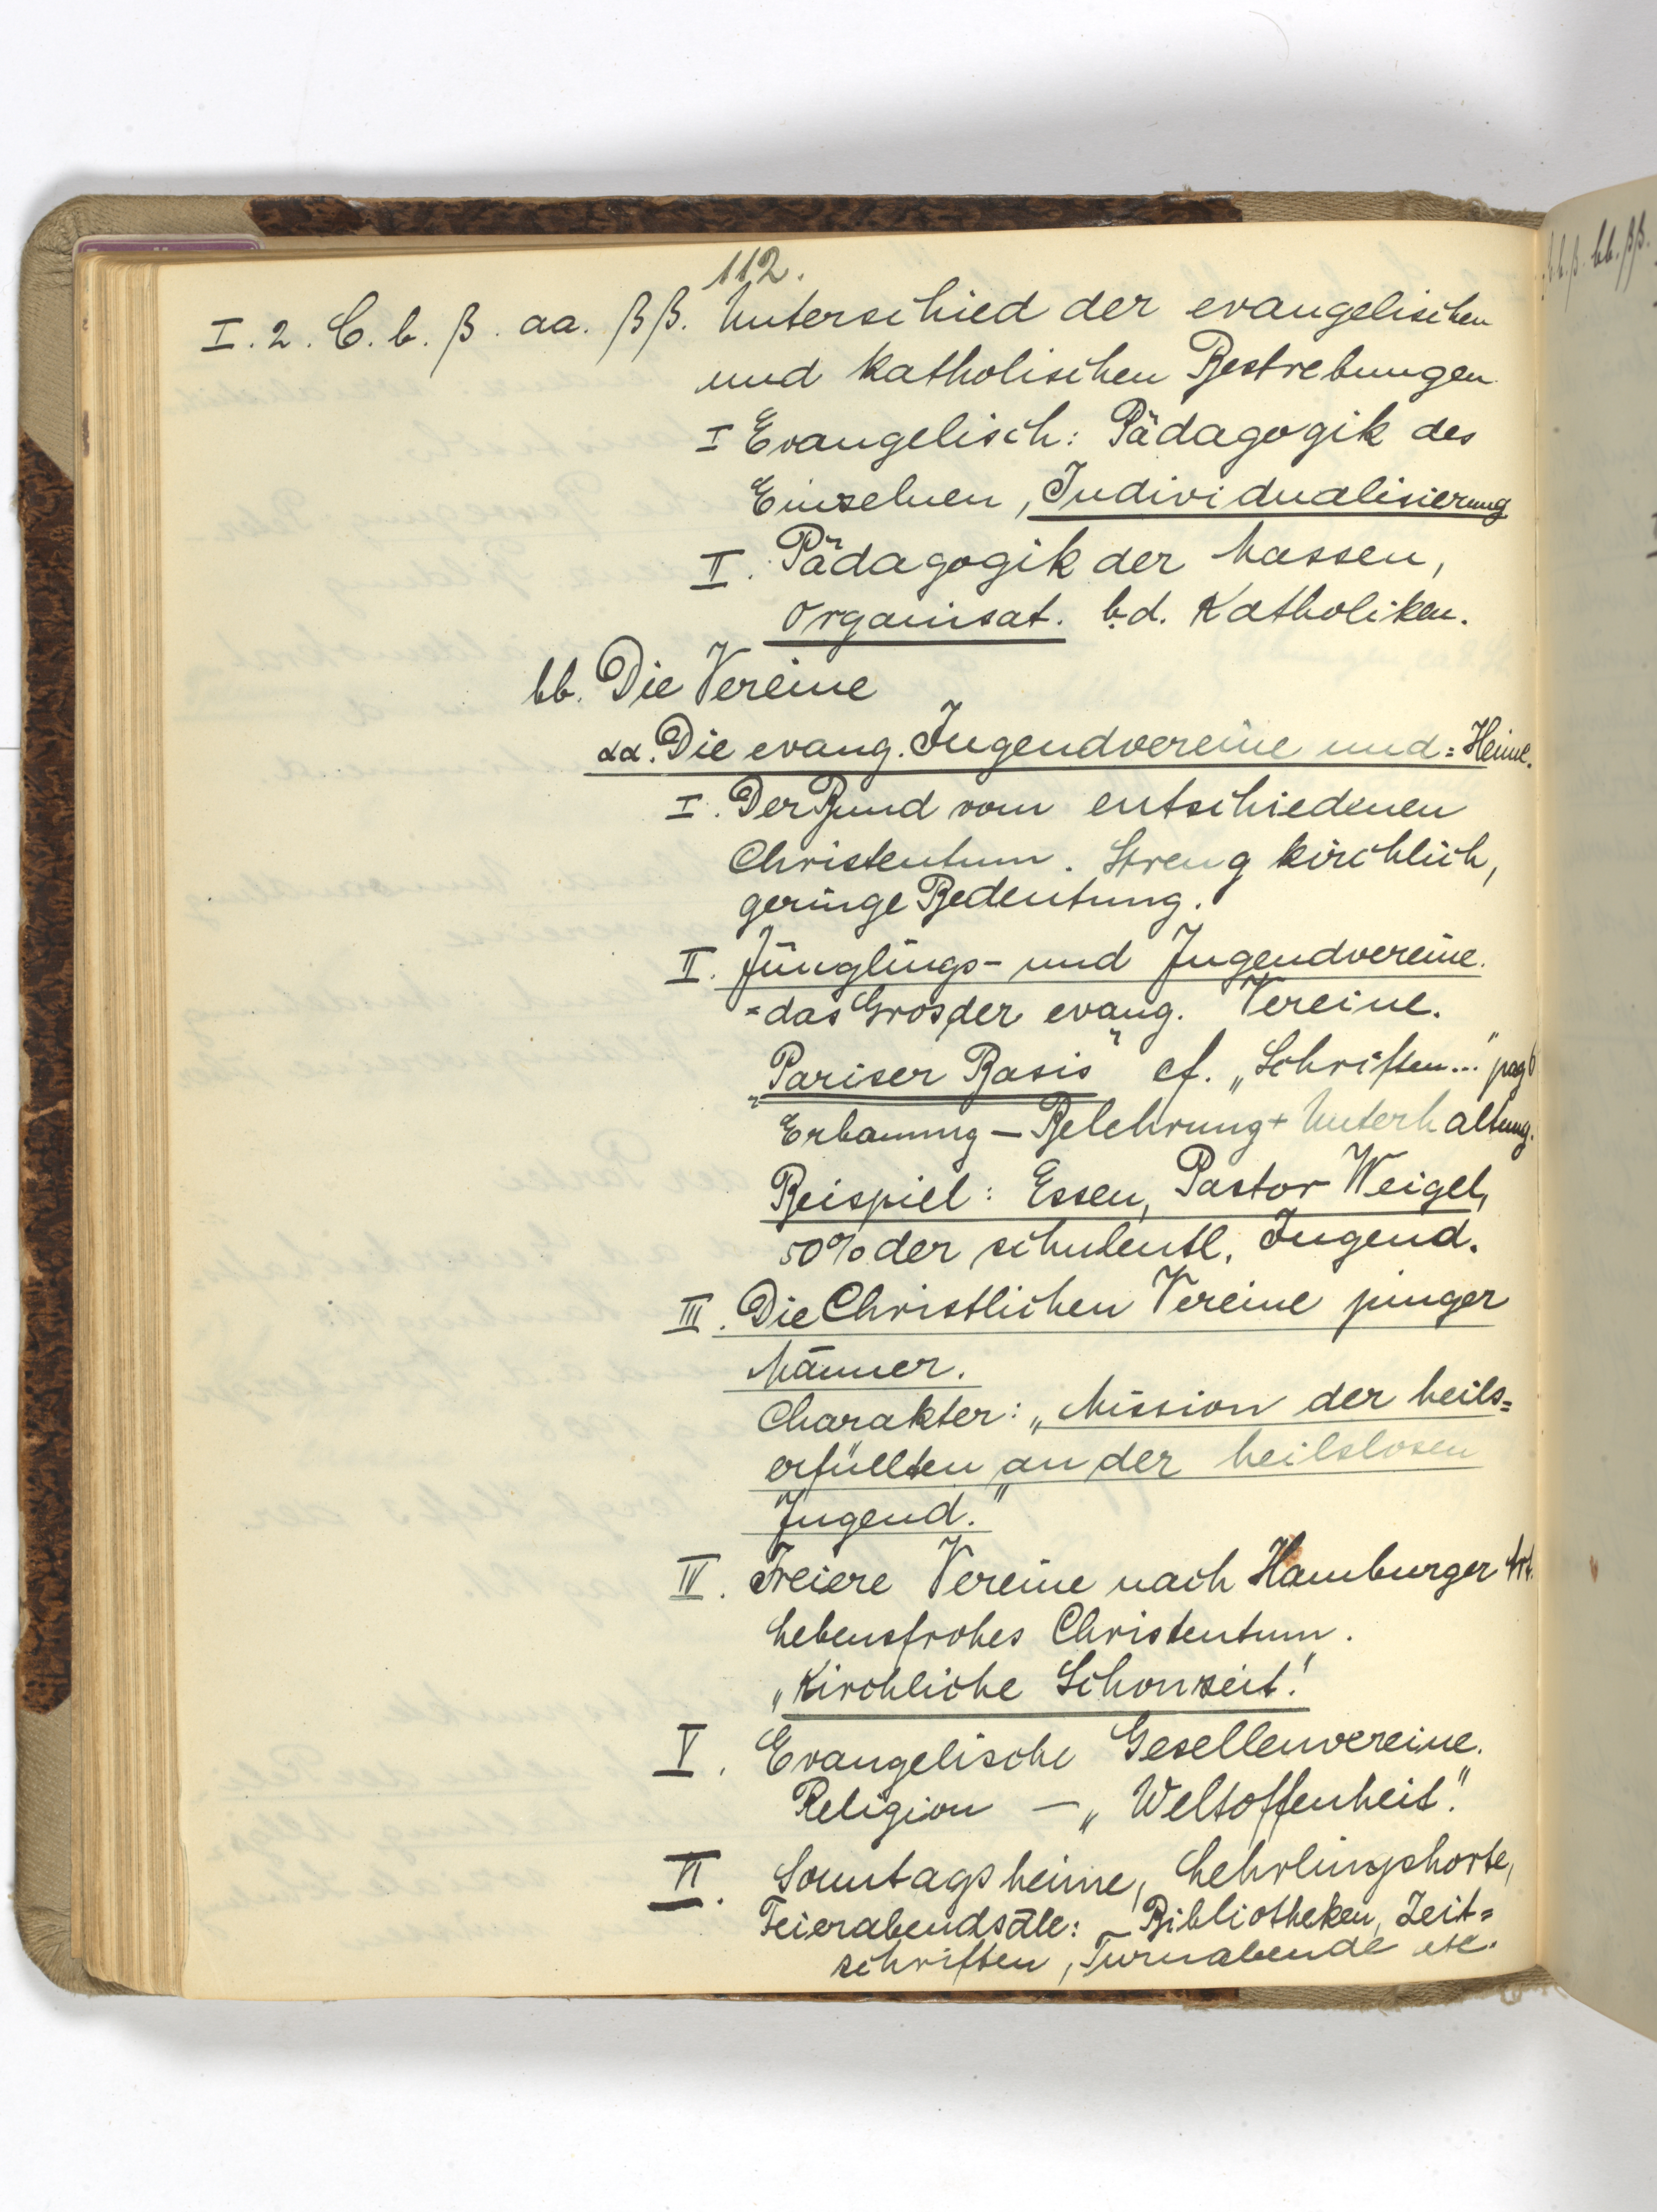 112.
I. 2. C. b. β. aa. ββ. Unterschied der evangelischen
und katholischen Bestrebungen
I Evangelisch: Pädagogik des
Einzelnen, Individualisierung
II. Pädagogik der Massen,
Organisat. b. d. Katholiken.
bb. Die Vereine
αα. Die evang. Jugendvereine und = Heime.
I. Der Bund vom entschiedenen
Christentum. Streng kirchlich,
geringe Bedeutung.
II. Jünglings- und Jugendvereine.
= das Gros der evang. Vereine.
"Pariser Basis" cf. „Schriften..." pag 6
Erbauung – Belehrung + Unterhaltung.
Beispiel: Essen, Pastor Weigel,
50% der schulentl. Jugend.
III. Die Christlichen Vereine junger
Männer.
Charakter: „Mission der heils=
erfüllten an der heilslosen
Jugend."
IV. Freiere Vereine nach Hamburger Art.
Lebensfrohes Christentum.
„Kirchliche Schonzeit."
V. Evangelische Gesellenvereine.
Religion – „Weltoffenheit."
VI. Sonntagsheime, Lehrlingshorte,
Feierabendsäle: – Bibliotheken, Zeit=
schriften, Turnabende etc.
b. β. bb. ββ.